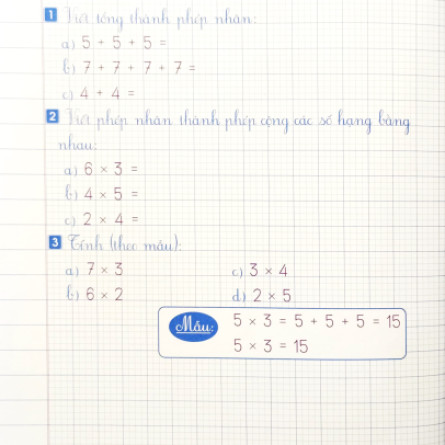 1 Viết tổng thành phép nhân:
a) 5 + 5 + 5 =
b) 7 + 7 + 7 + 7 =
c) 4 + 4 =
2 Viết phép nhân thành phép cộng các số hạng bằng
nhau:
a) 6 × 3 =
b) 4 × 5 =
c) 2 × 4 =
3 Tính (theo mẫu):
a) 7 × 3 c) 3 × 4
b) 6 × 2 d) 2 × 5
Mẫu: 5 × 3 = 5 + 5 + 5 = 15
5 × 3 = 15